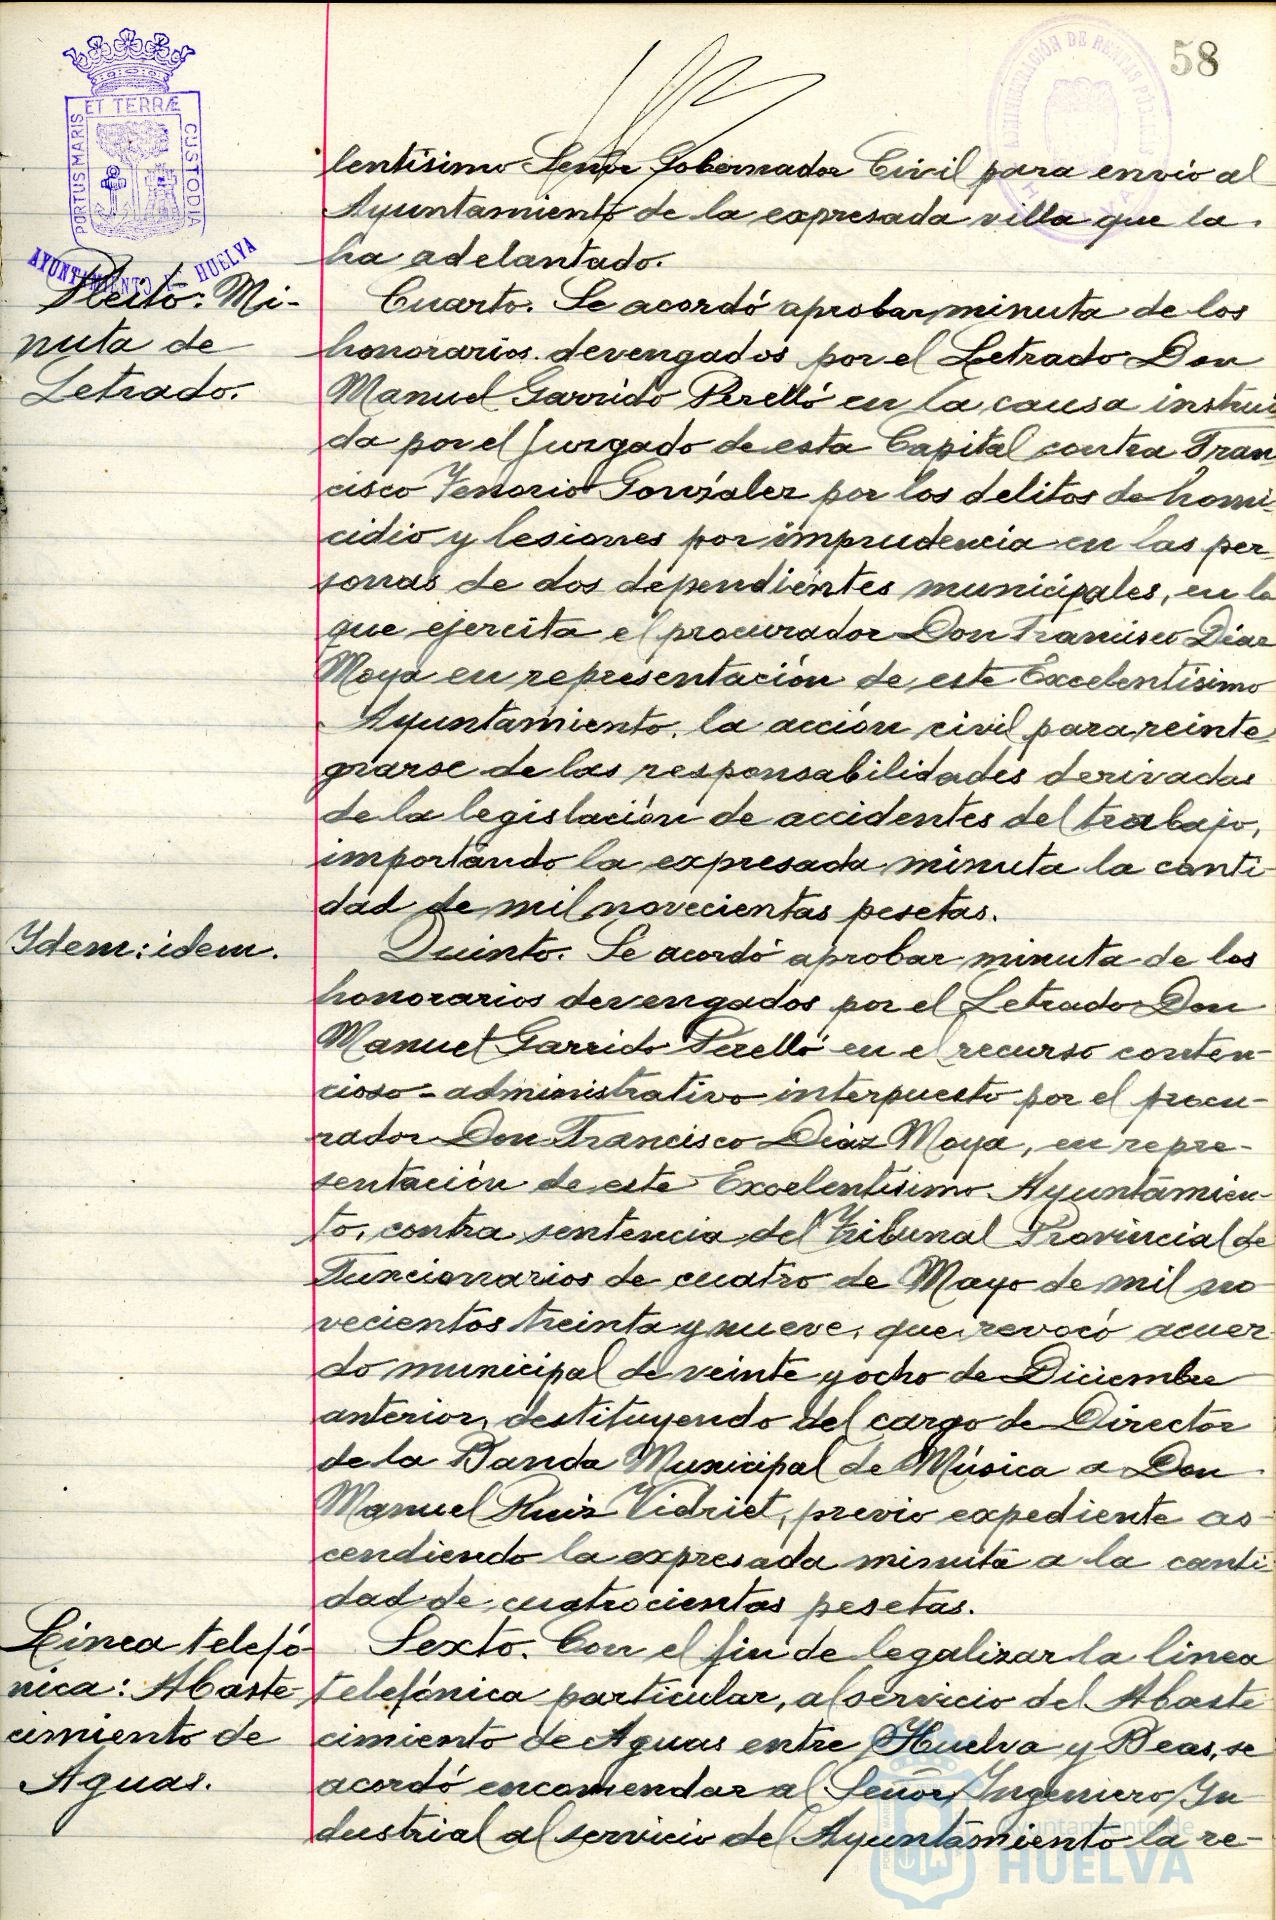 58
ADMINISTRACIÓN DE RENTAS PÚBLICAS
PORTUS MARIS ET TERRÆ CUSTODIA
AYUNTAMIENTO DE HUELVA
lentísimo Señor Gobernador Civil para envío al
Ayuntamiento de la expresada villa que la
ha adelantado.
Pleito: Mi-
nuta de
Letrado.
Cuarto. Se acordó aprobar minuta de los
honorarios devengados por el Letrado Don
Manuel Garrido Perelló en la causa instrui
da por el Juzgado de esta Capital contra Fran
cisco Tenorio González por los delitos de homi-
cidio y lesiones por imprudencia en las per-
sonas de dos dependientes municipales, en la
que ejercita el procurador Don Francisco Díaz
Moya en representación de este Excelentísimo
Ayuntamiento, la acción civil para reinte
grarse de las responsabilidades derivadas
de la legislación de accidentes del trabajo,
importando la expresada minuta la canti-
dad de mil novecientas pesetas.
Ydem: idem.
Quinto. Se acordó aprobar minuta de los
honorarios devengados por el Letrado Don
Manuel Garrido Perelló en el recurso conten-
cioso-administrativo interpuesto por el procu-
rador Don Francisco Díaz Moya, en repre-
sentación de este Excelentísimo Ayuntamien-
to, contra sentencia del Tribunal Provincial de
Funcionarios de cuatro de Mayo de mil no
vecientos treinta y nueve, que revocó acuer-
do municipal de veinte y ocho de Diciembre
anterior, destituyendo del cargo de Director
de la Banda Municipal de Música a Don
Manuel Ruiz Vidriet, previo expediente as-
cendiendo la expresada minuta a la canti-
dad de cuatrocientas pesetas.
Línea telefó
nica: Abaste-
cimiento de
Aguas.
Sexto. Con el fin de legalizar la línea
telefónica particular, al servicio del Abaste
cimiento de Aguas entre Huelva y Beas, se
acordó encomendar al Señor Ingeniero In
dustrial al servicio del Ayuntamiento la re-
Ayuntamiento de
HUELVA